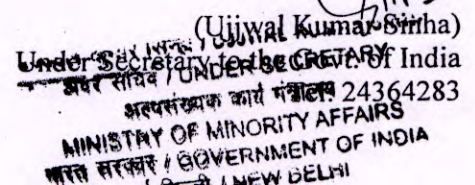 (Ujjwal Kumar Sinha)
Under Secretary to the Govt. of India
24364283
अवर सचिव / UNDER SECRETARY
अल्पसंख्यक कार्य मंत्रालय
MINISTRY OF MINORITY AFFAIRS
भारत सरकार / GOVERNMENT OF INDIA
/ NEW DELHI